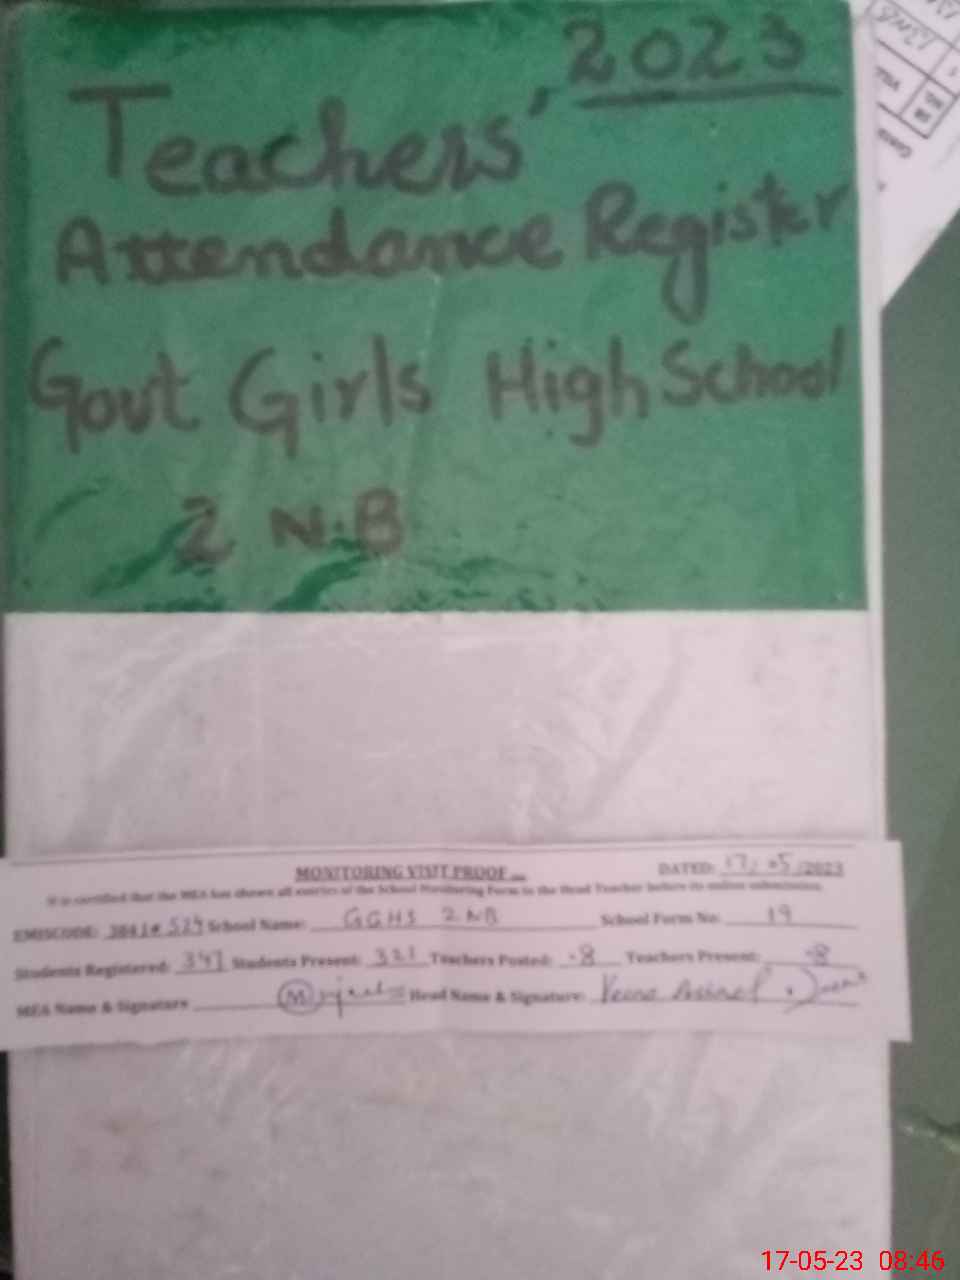 2023
Teachers'
Attendance Register
Govt Girls High School
2 N.B
MONITORING VISIT PROOF
DATED: 17/05/2023
It is certified that the MEA has shown all entries of the School Monitoring Form to the Head Teacher before its online submission.
EMISCODE: School Name: GGHS 2 NB School Form No: 19
Students Registered: 347 Students Present: 321 Teachers Posted: 8 Teachers Present: 8
MEA Name & Signature Head Name & Signature:
17-05-23 08:46